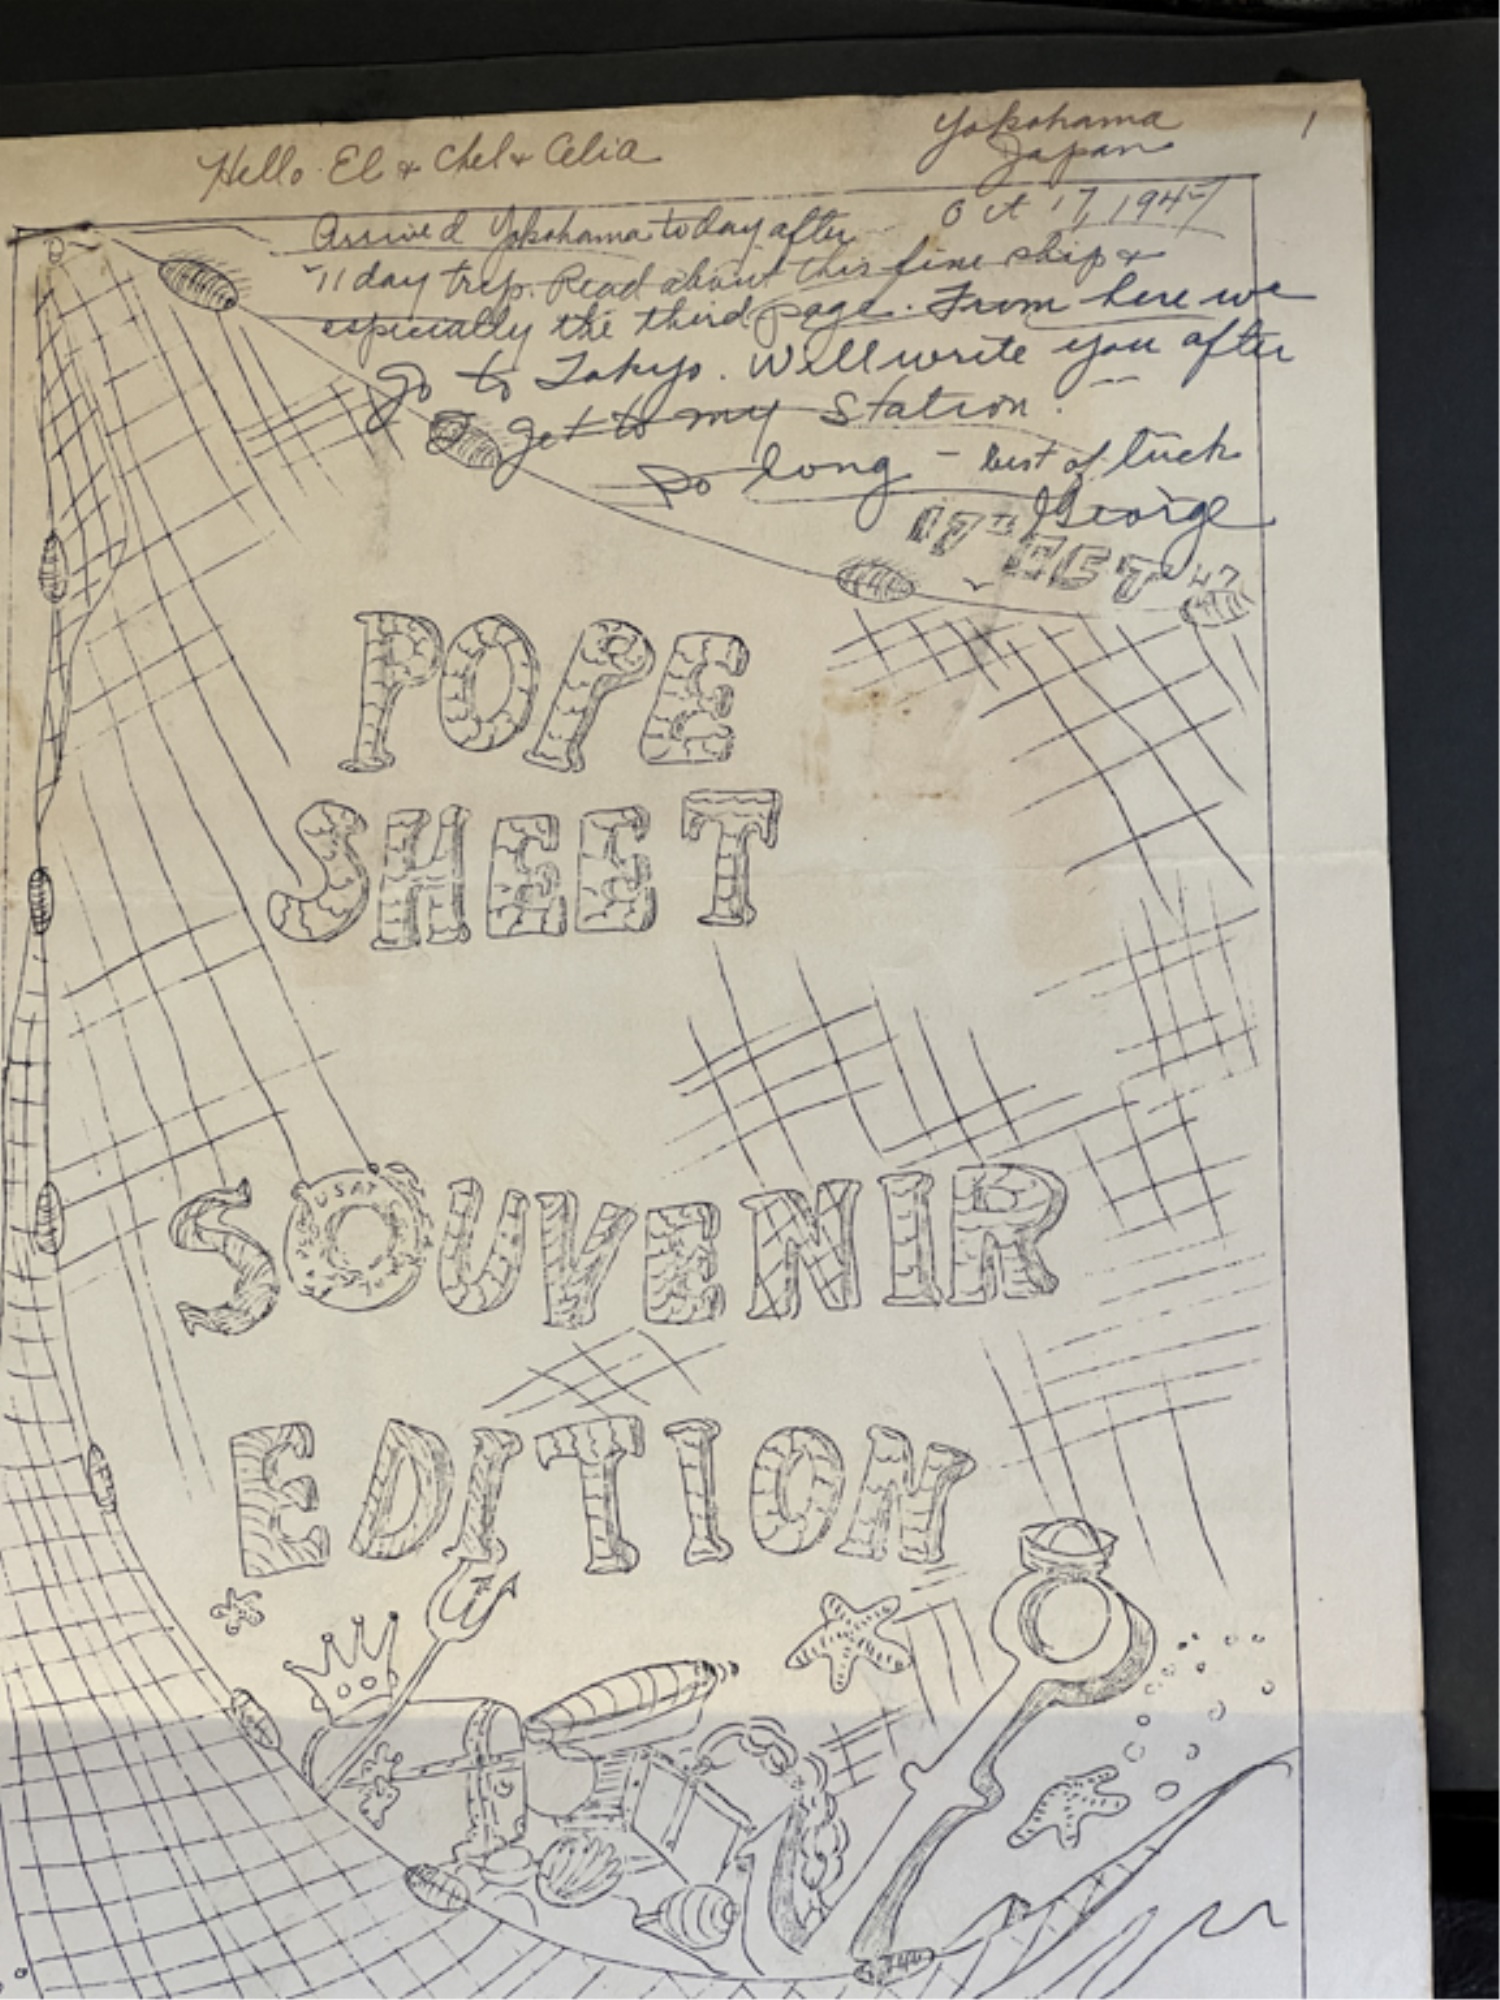 Yokohama 1
Hello El & Chel & Celia Japan
Oct 17, 1947
Arrived Yokohama today after
11 day trip. Read about this fine ship &
especially the third page. From here we
go to Tokyo. Will write you after
I get to my station.
So long - best of luck
George
17TH OCT 47
POPE
SHEET
SOUVENIR
USAT
EDITION